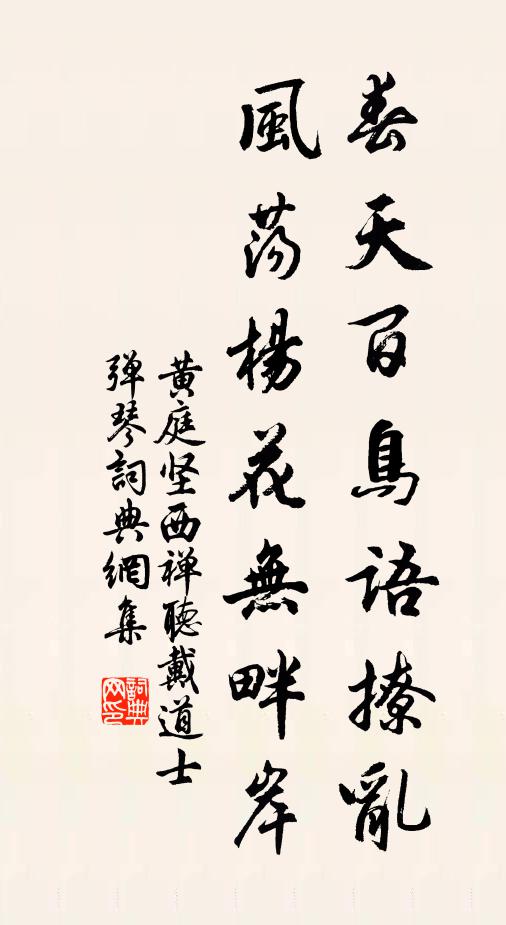 春天百鳥語撩亂
風蕩楊花無畔岸
黄庭坚西禅聽戴道士
弹琴詞典網集
詞典
网印